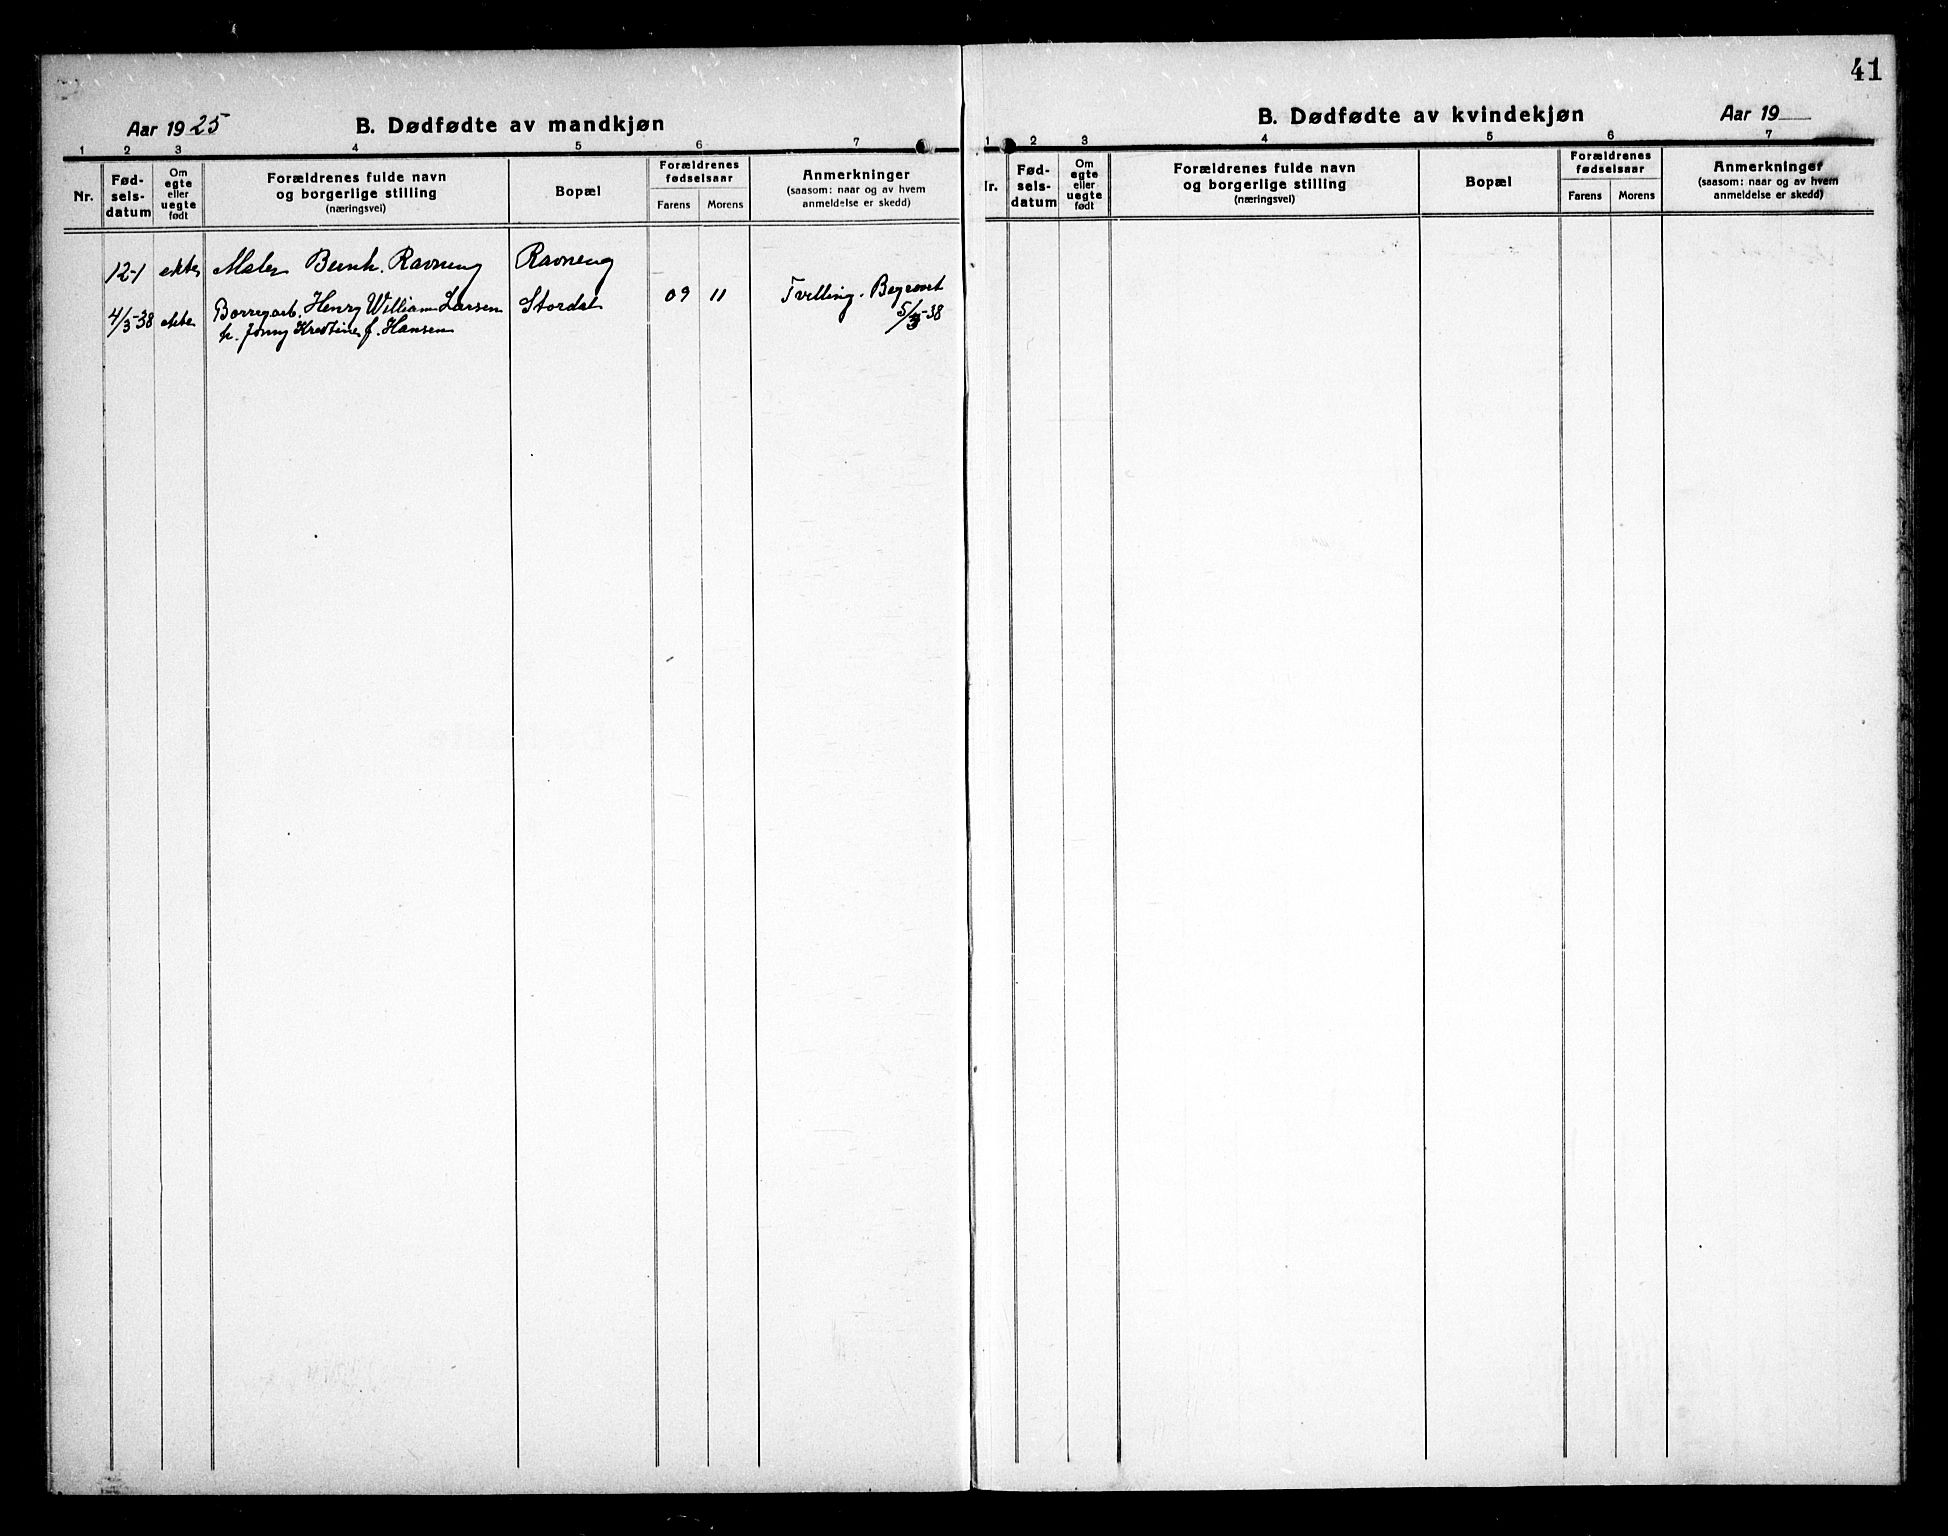 41
Aar 1925 B. Dødfødte av mandkjøn
1 2 3 4 5 6 7
Nr.
Fød-
sels-
datum
Om
egte
eller
uegte
født
Forældrenes fulde navn
og borgerlige stilling
(næringsvei)
Bopæl
Forældrenes
fødselsaar
Farens Morens
Anmerkninger
(saasom: naar og av hvem
anmeldelse er skedd)
12-1 ekte Maler Bernh. Ravneng Ravneng
4/3-38 ekte Borregarb. Henry William Larsen Stordal 09 11 Tvilling. Begravet
h. Jenny Kristine f. Hansen 5/3-38
B. Dødfødte av kvindekjøn Aar 19
1 2 3 4 5 6 7
Nr.
Fød-
sels-
datum
Om
egte
eller
uegte
født
Forældrenes fulde navn
og borgerlige stilling
(næringsvei)
Bopæl
Forældrenes
fødselsaar
Farens Morens
Anmerkninger
(saasom: naar og av hvem
anmeldelse er skedd)